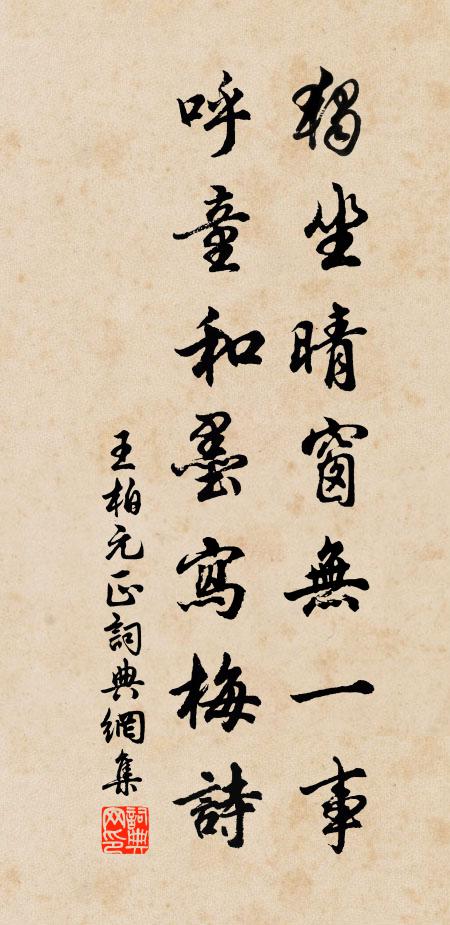 獨坐晴窗無一事
呼童和墨寫梅詩
王柏元正詞典網集
詞典网印